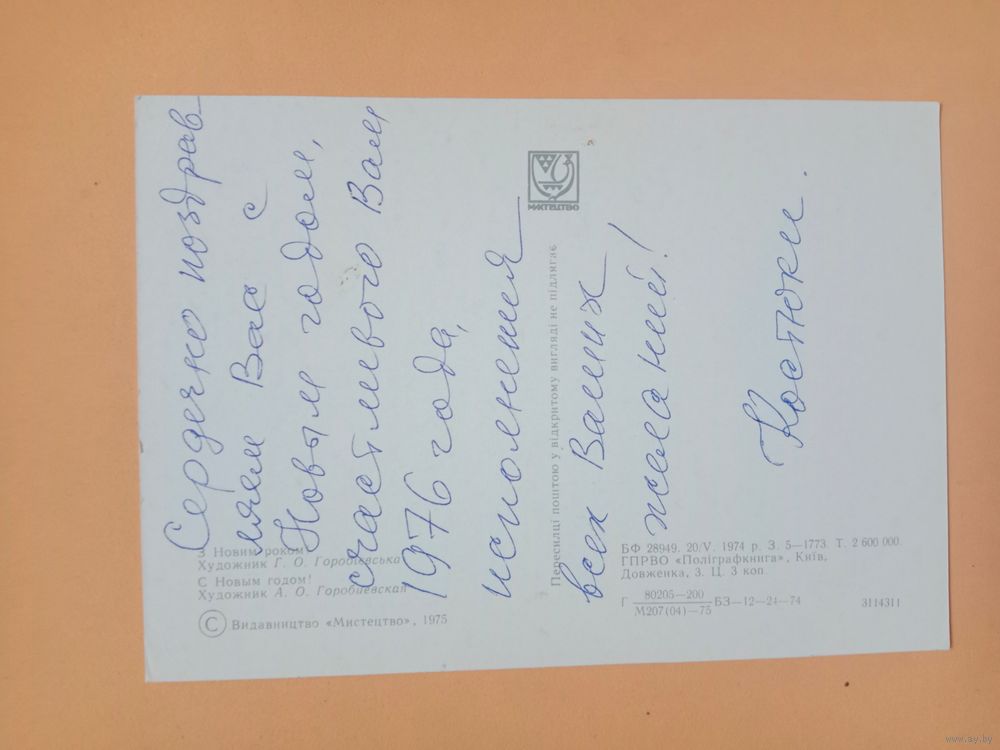 Сердечно поздрав-
ляем Вас с
Новым годом,
счастливого Вам
1976 года,
исполнения
всех Ваших
желаний!
Костюки.
З Новим роком!
Художник Г. О. Горобієвська
С Новым годом!
Художник А. О. Горобиевская
© Видавництво «Мистецтво», 1975
Пересилці поштою у відкритому вигляді не підлягає
МИСТЕЦТВО
БФ 28949. 20/V. 1974 р. З. 5—1773. Т. 2 600 000.
ГПРВО «Поліграфкнига», Київ,
Довженка, 3. Ц. 3 коп.
Г 80205—200
М207(04)—75 БЗ—12—24—74 3114311
www.ay.by